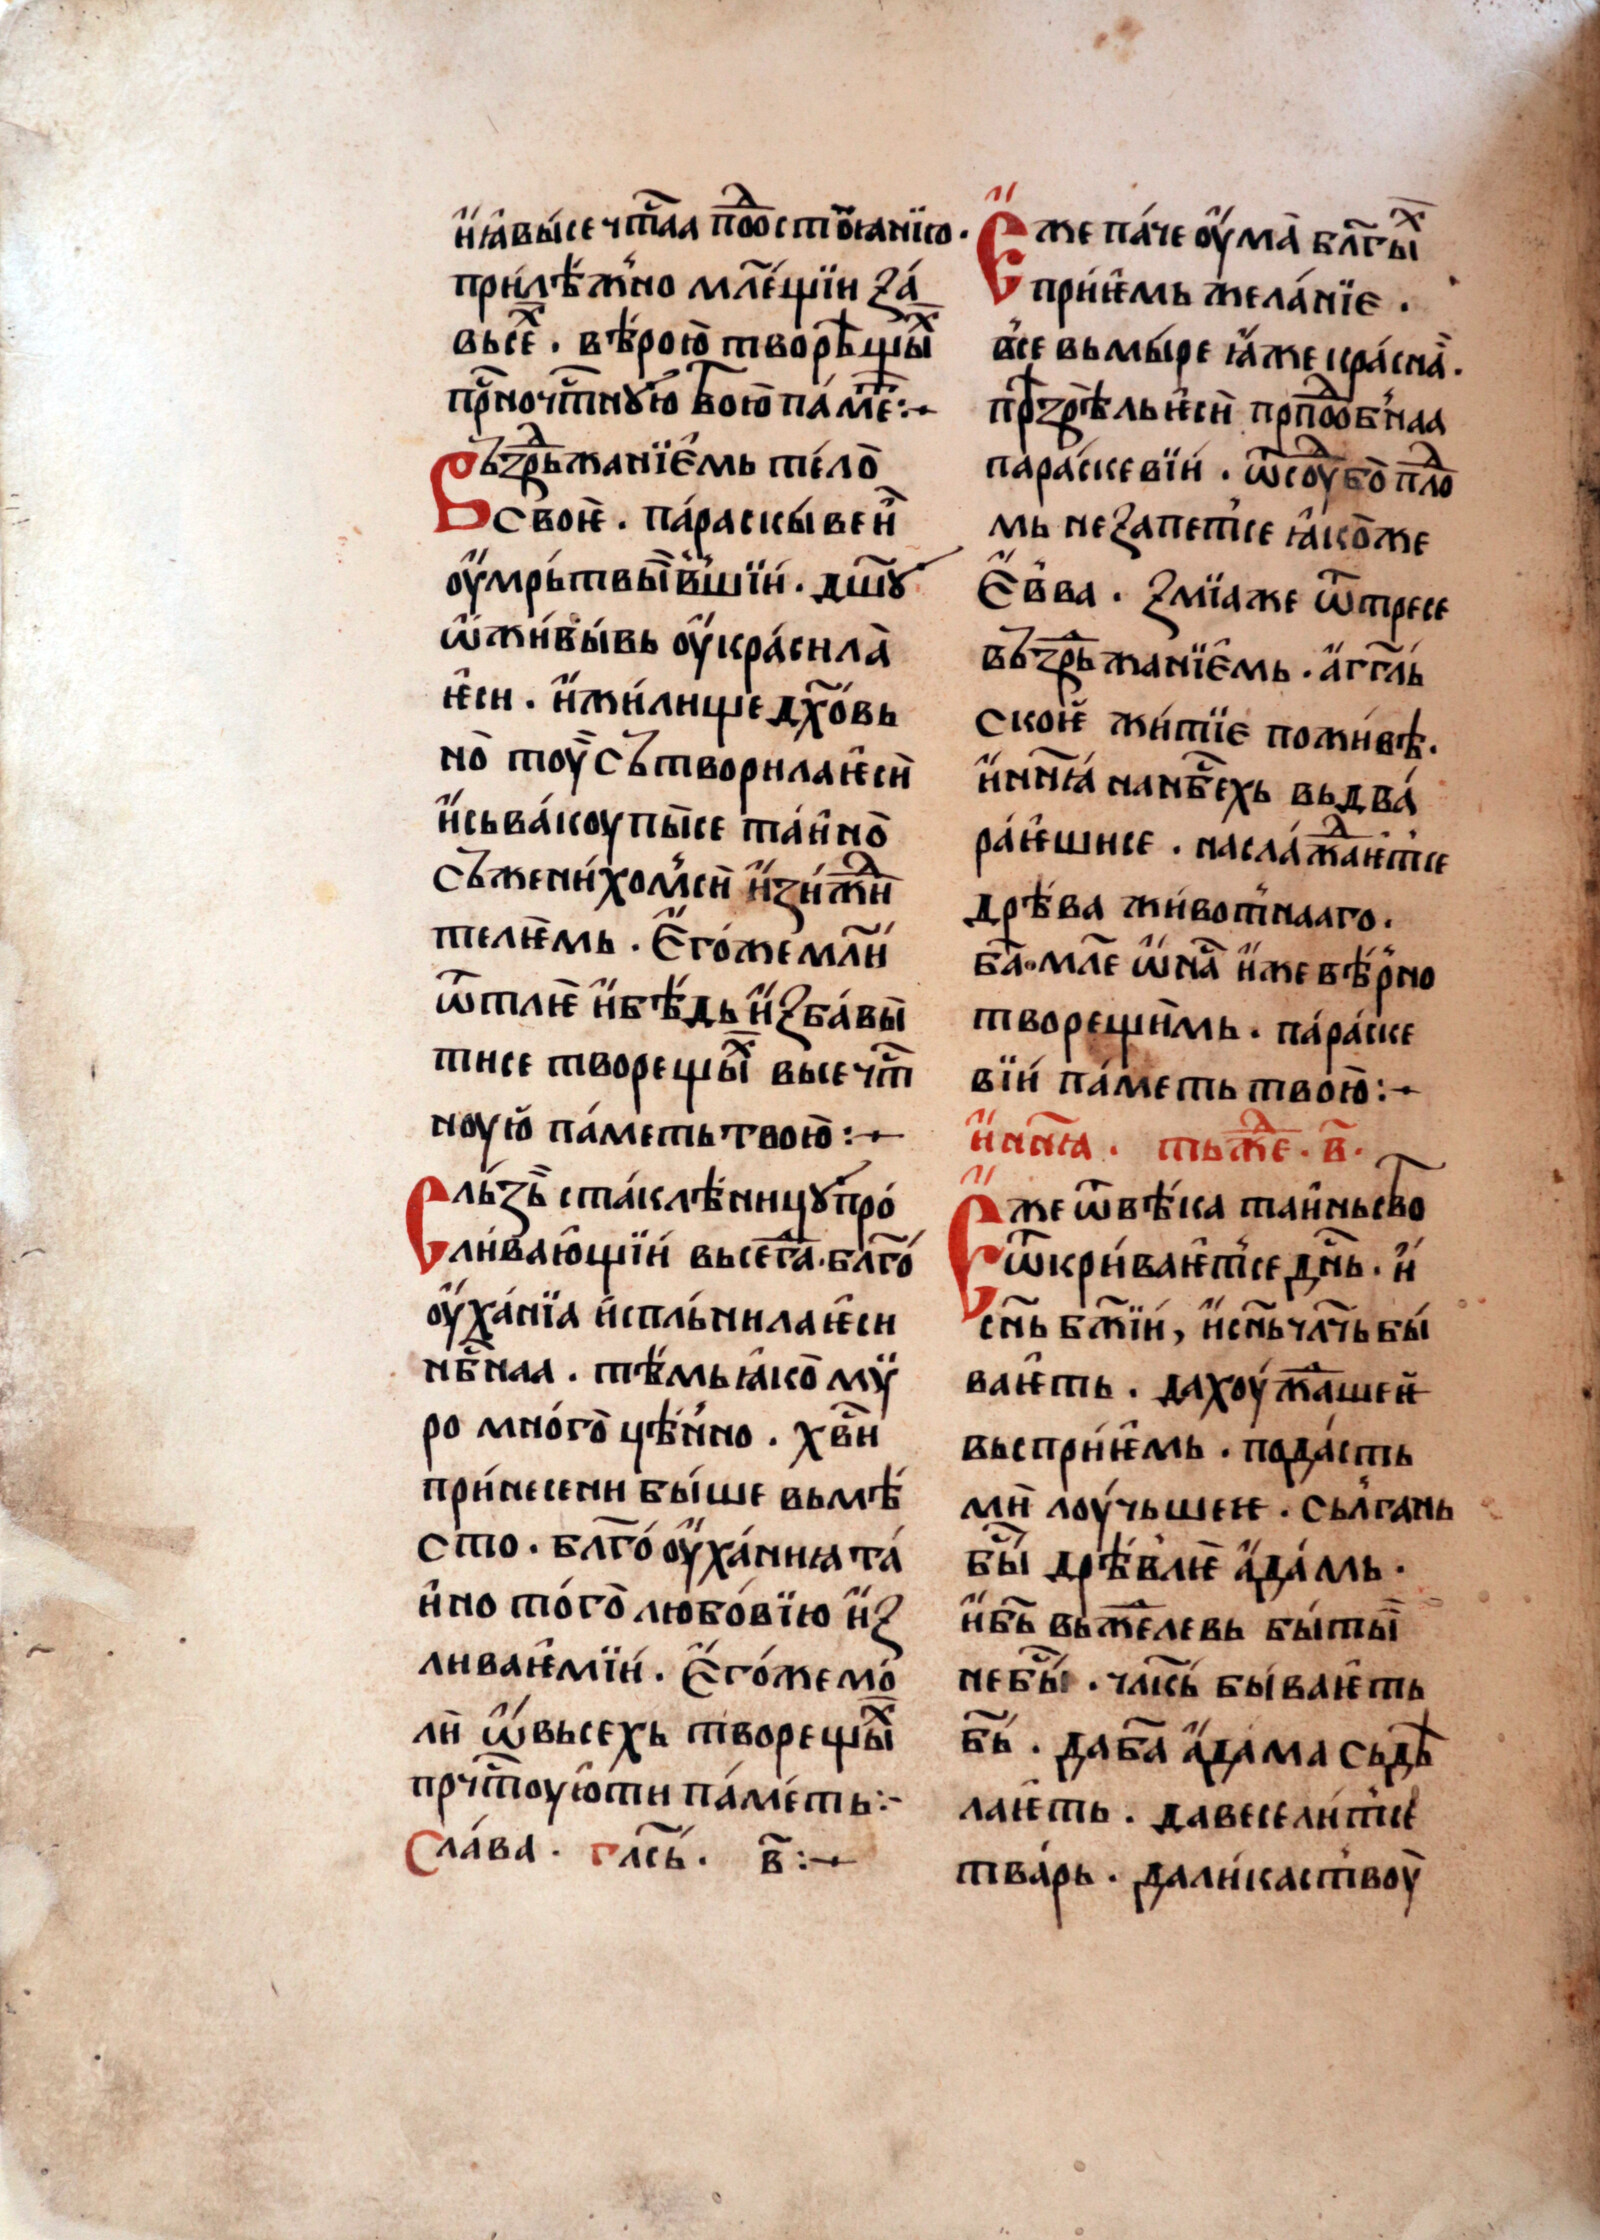 и҆ꙗвы́се чт̑наа по̑до́стоꙗнїю.
прилѣ́жно мл҃е́щїи за́
вьсе̑х. вѣ́рою творѣщы̑х
пр̑ночт̑ную твою па́ме̑т:~
Въздрьжанїемь тѣ́ло
своѥ. па́раскы́веи
оу҆мрьтвы́вшїи. дш҃у
ѡ҆жи́вы́вь оу҆кра́сила
ѥси. и҆жи́лище дх҃о́вь
но тоу̀ сътворила ѥси
и҆сьва́коупы́се та́и҆но
съжени́хомси и҆зи́жди
телѥмь. Є҆го́же мл҃и
ѿтлѥ и҆бѣ́дь и҆зба́вы
тисе творещы̑х высечт̑
ноую па́меть твою:~
Сльзь ста́клѣницу про́
ли́вающїи вьсег҃да. бл҃го́
оу҆ха́нїа испльнила ѥси
нб҃наа. тѣ́мь ꙗ҆ко мѵ̈
ро мно́го цѣ́нно. хв҃и
при́несени бы́ше вьмѣ́
сто. бл҃го́оу҆ха́ниꙗ та́
и҆но то́го любо́вїю и҆з
ливаѥмїи. Є҆го́же мо
ли ѡ҆вьсехь творещы̑х
прчт̑оую ти па́меть:~
Сла́ва. гла́сь. в҃:~
Є҆же па́че оу҆ма бл҃гы̑х
при́ѥмь жела́нїе.
все вьмы́ре ꙗ҆же кра́сна.
прѣзрѣль ѥси прпо̑добнаа
пара́скевїи. ѿсоу̑ду бо пло̑до
мь незапетсе ꙗ҆ко́же
Є҆вва. змїа же ѿтресе
въздрьжанїемь. а҆гг҃ль
скоѥ жи́тїе пожи́вѣ.
и҆нн҃ꙗ нанб҃се́хь вьдва́
ра́ѥшисе. насла́жда́ѥтсе
дрѣ́ва жи́вотнааго.
ба҃.мл҃е ѡ҆на҃ и҆же вѣ́рно
творещимь. па́ра́ске
вїи па́меть твою:~
и҆нн҃ꙗ. тьжде. в҃.
Є҆же ѿвѣ́ка таиньство
ѿкри́ваѥтсе дн҃ь. и҆
сн҃ь бж҃їи, и҆сн҃ь чл҃чь бы́
ваѥть. дахоу́ждашеѥ
вьспри́ѥмь. пода́сть
ми лоу́чьшеѥ. сьлгань
бы̑ дрѣ́влѥ а҆да́мь.
и҆бь҃ вьжелевь бы́ты
небы̑. чл҃кь бы́ваѥть
бь҃. даба҃ а҆дама сьдѣ
лаѥть. давесели́тсе
тва́рь. дали́каствоу